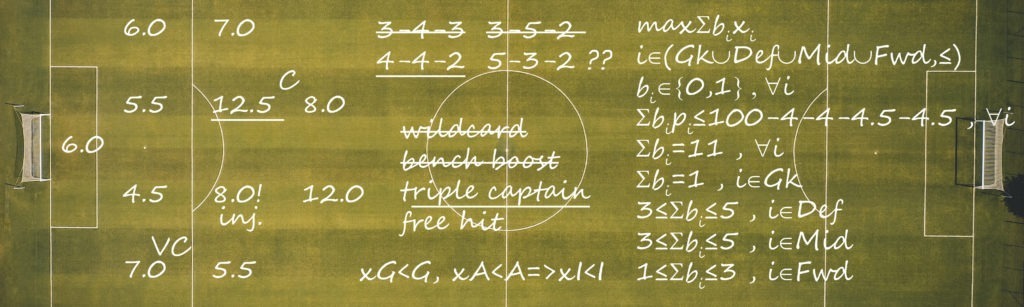 6.0 7.0
C
5.5 12.5 8.0
6.0
4.5 8.0! 12.0
inj.
VC
7.0 5.5
3-4-3 3-5-2
4-4-2 5-3-2 ??
wildcard
bench boost
triple captain
free hit
xG<G, xA<A=>xI<I
maxΣbᵢxᵢ
i∈(Gk∪Def∪Mid∪Fwd,≤)
bᵢ∈{0,1} , ∀i
Σbᵢpᵢ≤100-4-4-4.5-4.5 , ∀i
Σbᵢ=11 , ∀i
Σbᵢ=1 , i∈Gk
3≤Σbᵢ≤5 , i∈Def
3≤Σbᵢ≤5 , i∈Mid
1≤Σbᵢ≤3 , i∈Fwd